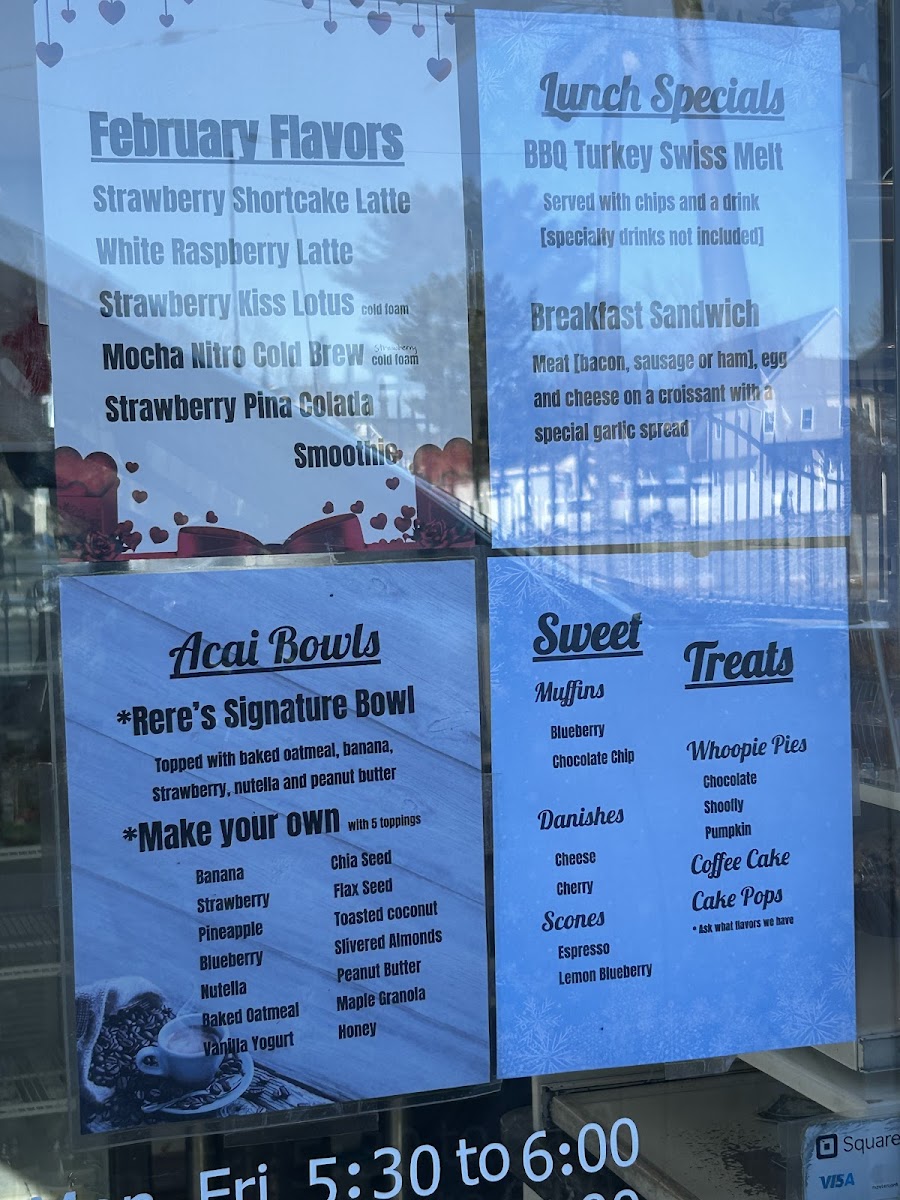 February Flavors
Strawberry Shortcake Latte
White Raspberry Latte
Strawberry Kiss Lotus cold foam
Mocha Nitro Cold Brew strawberry cold foam
Strawberry Pina Colada
Smoothie
Lunch Specials
BBQ Turkey Swiss Melt
Served with chips and a drink
[specialty drinks not included]
Breakfast Sandwich
Meat [bacon, sausage or ham], egg
and cheese on a croissant with a
special garlic spread
Acai Bowls
*Rere's Signature Bowl
Topped with baked oatmeal, banana,
Strawberry, nutella and peanut butter
*Make your own with 5 toppings
Banana
Strawberry
Pineapple
Blueberry
Nutella
Baked Oatmeal
Vanilla Yogurt
Chia Seed
Flax Seed
Toasted coconut
Slivered Almonds
Peanut Butter
Maple Granola
Honey
Sweet
Treats
Muffins
Blueberry
Chocolate Chip
Danishes
Cheese
Cherry
Scones
Espresso
Lemon Blueberry
Whoopie Pies
Chocolate
Shoofly
Pumpkin
Coffee Cake
Cake Pops
* Ask what flavors we have
Mon Fri 5:30 to 6:00
Square
VISA